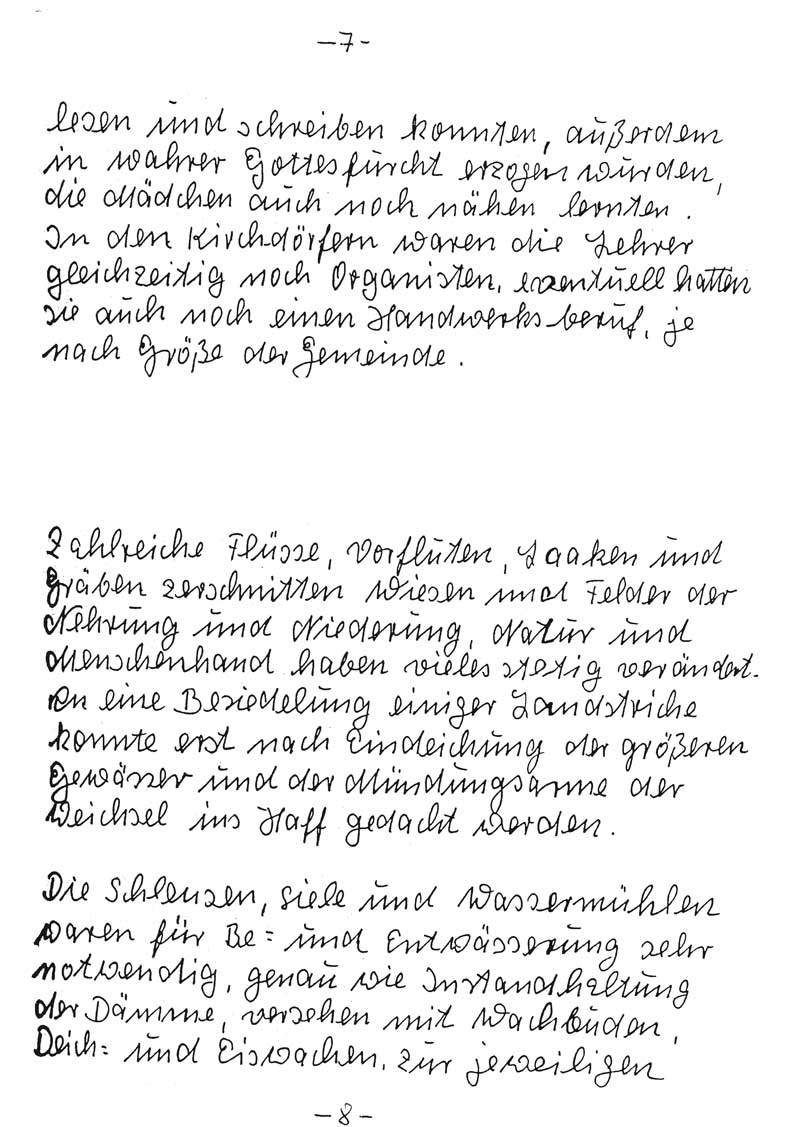 -7-
lesen und schreiben konnten, außerdem
in wahrer Gottesfurcht erzogen wurden,
die Mädchen auch noch nähen lernten.
In den Kirchdörfern waren die Lehrer
gleichzeitig noch Organisten, eventuell hatten
sie auch noch einen Handwerksberuf, je
nach Größe der Gemeinde.
Zahlreiche Flüsse, Vorfluten, Laaken und
Gräben zerschnitten Wiesen und Felder der
Nehrung und Niederung, Natur und
Menschenhand haben vieles stetig verändert.
An eine Besiedelung einiger Landstriche
konnte erst nach Eindeichung der größeren
Gewässer und der Mündungsarme der
Weichsel ins Haff gedacht werden.
Die Schleusen, Siele und Wassermühlen
waren für Be= und Entwässerung sehr
notwendig, genau wie Instandhaltung
der Dämme, versehen mit Wachbuden,
Deich= und Eiswachen, zur jeweiligen
-8-